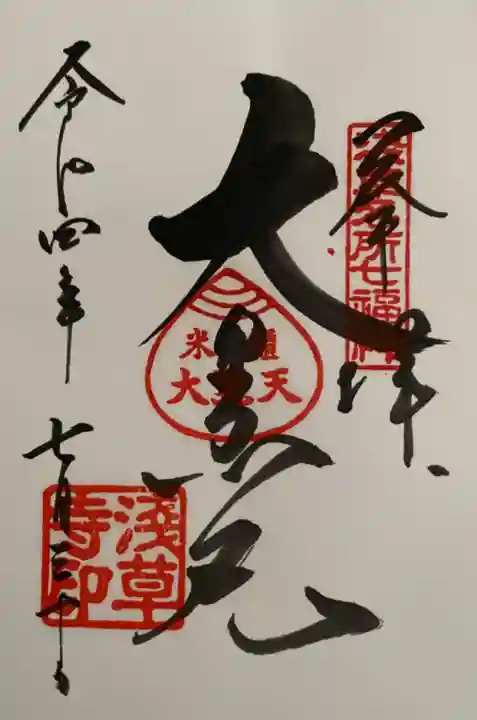 奉拝
浅草名所七福神
大黒天
米櫃
大黒天
浅草寺印
令和四年七月三十日